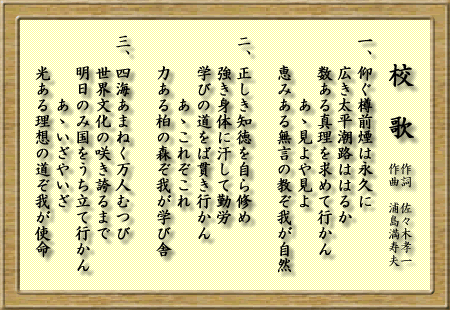 校歌
作詞 佐々木孝一
作曲 浦島満寿夫
一、仰ぐ樽前煙は永久に
広き太平潮路ははるか
数ある真理を求めて行かん
あゝ見よや見よ
恵みある無言の教ぞ我が自然
二、正しき知徳を自ら修め
強き身体に汗して勤労
学びの道をば貫き行かん
あゝこれぞこれ
力ある柏の森ぞ我が学び舎
三、四海あまねく万人むつび
世界文化の咲き誇るまで
明日のみ国をうち立て行かん
あゝいざやいざ
光ある理想の道ぞ我が使命